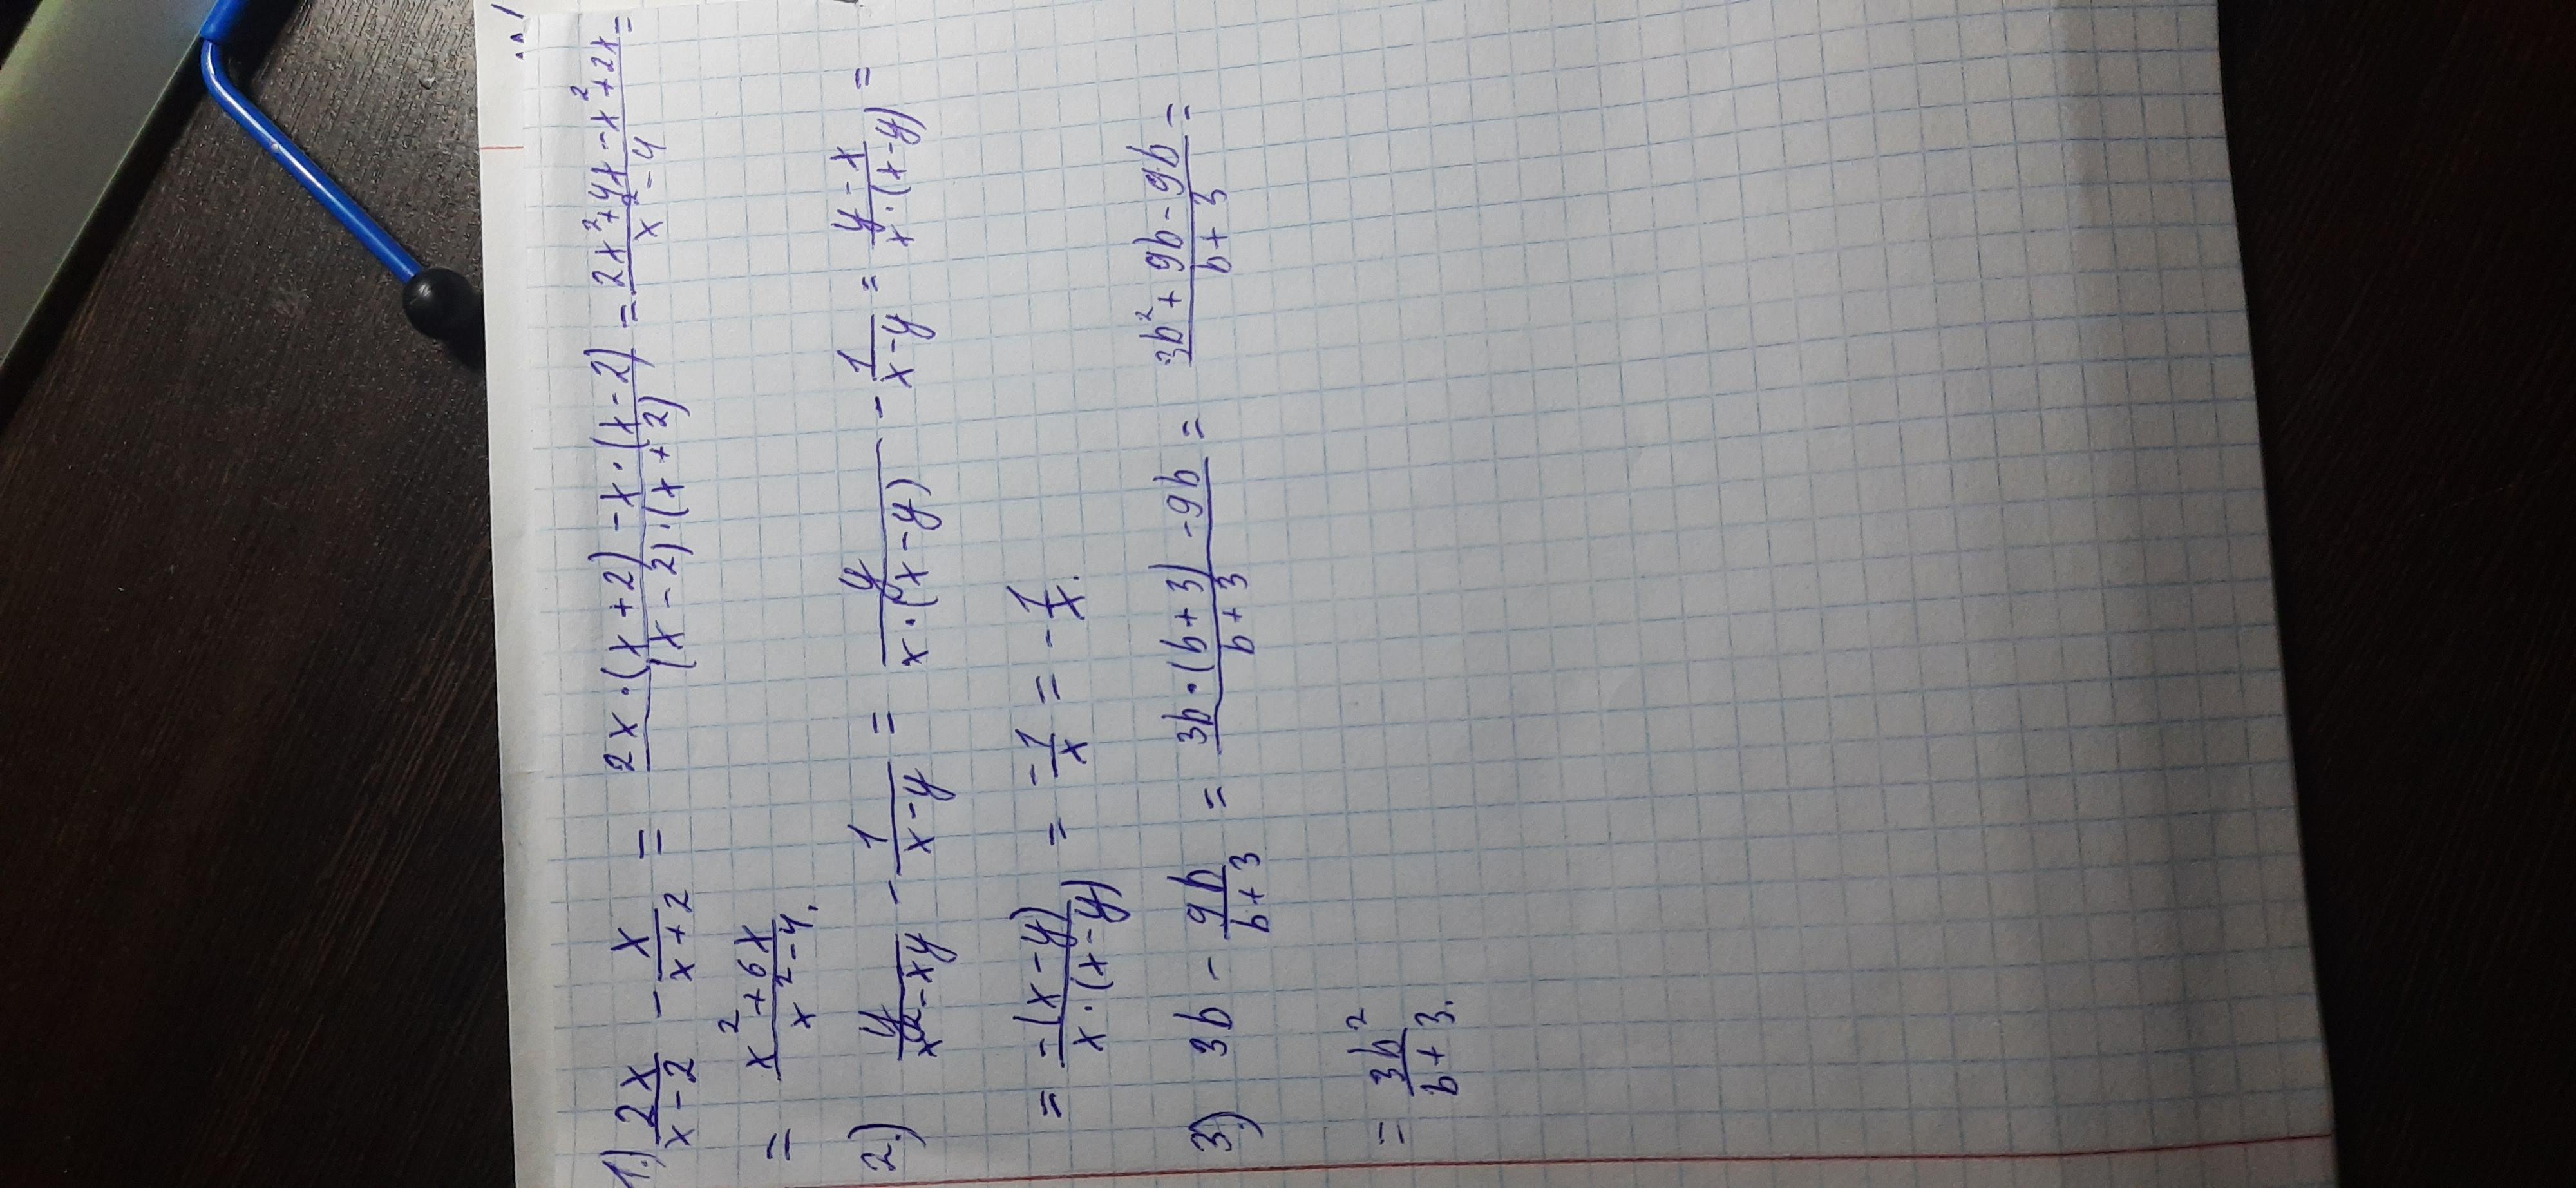 1.) 2x/(x-2) - x/(x+2) = (2x·(x+2) - x·(x-2))/((x-2)·(x+2)) = (2x²+4x-x²+2x)/(x²-4) =
= (x²+6x)/(x²-4).
2.) y/(x²-xy) - 1/(x-y) = y/(x·(x-y)) - 1/(x-y) = (y-x)/(x·(x-y)) =
= -(x-y)/(x·(x-y)) = -1/x = -1/x.
3.) 3b - 9b/(b+3) = (3b·(b+3)-9b)/(b+3) = (3b²+9b-9b)/(b+3) =
= 3b²/(b+3).